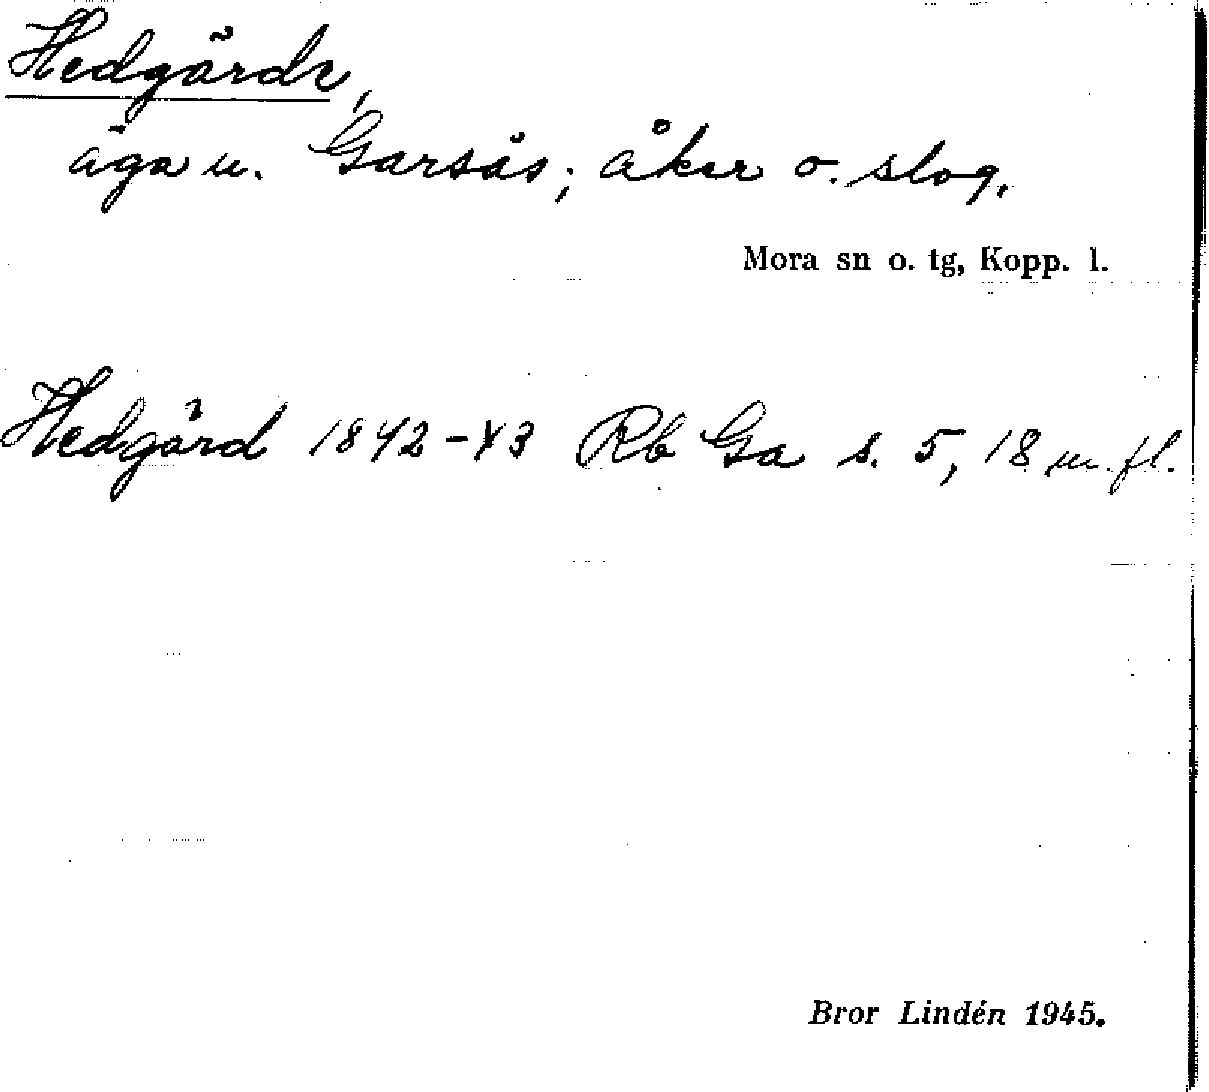 Hedgårde,
äga u. Garsås; åker o. slog.
Mora sn o. tg, Kopp. l.
Hedgård 1842-43 Rb Ga s. 5, 18 m. fl.
Bror Lindén 1945.